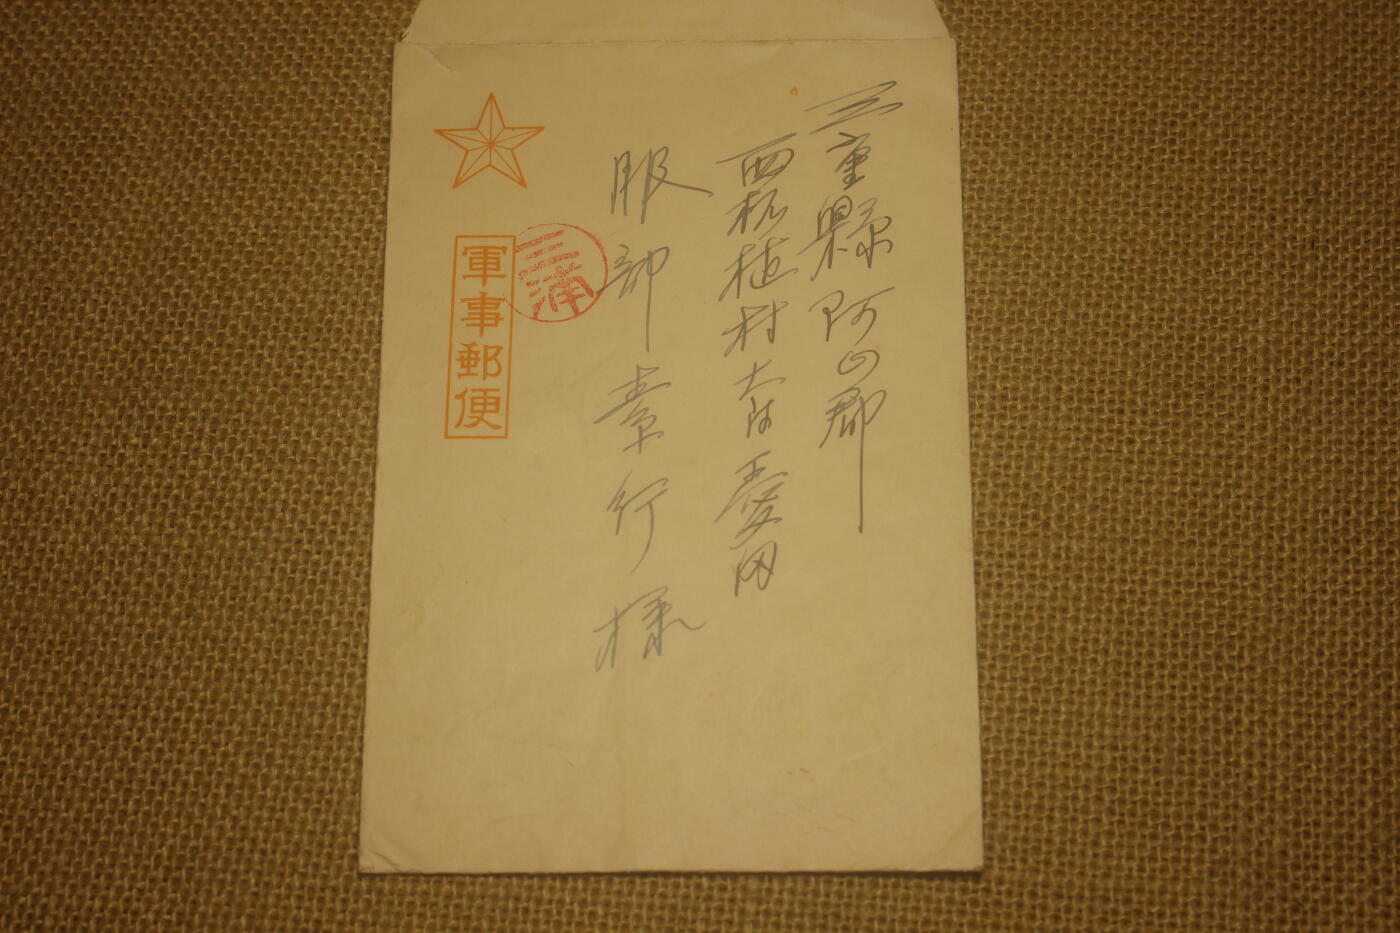 三重縣阿山郡
西柘植村大字愛田
服部章行様
軍事郵便
三浦